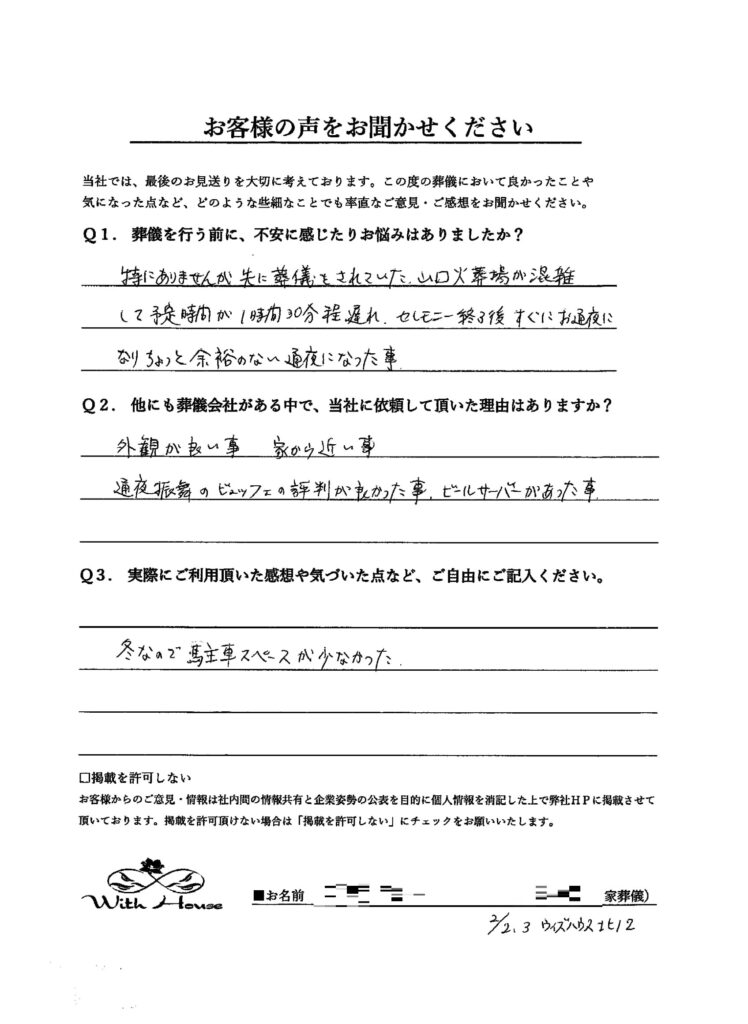 お客様の声をお聞かせください
当社では、最後のお見送りを大切に考えております。この度の葬儀において良かったことや
気になった点など、どのような些細なことでも率直なご意見・ご感想をお聞かせください。
Q1. 葬儀を行う前に、不安に感じたりお悩みはありましたか？
特にありませんが先に葬儀をされていた、山口火葬場が混雑
して予定時間が1時間30分程遅れ、セレモニー終了後すぐにお通夜に
なりちょっと余裕のない通夜になった事
Q2. 他にも葬儀会社がある中で、当社に依頼して頂いた理由はありますか？
外観が良い事 家から近い事
通夜振舞のビュッフェの評判が良かった事、ビールサーバーがあった事
Q3. 実際にご利用頂いた感想や気づいた点など、ご自由にご記入ください。
冬なので駐車スペースが少なかった.
□掲載を許可しない
お客様からのご意見・情報は社内間の情報共有と企業姿勢の公表を目的に個人情報を消記した上で弊社HPに掲載させて
頂いております。掲載を許可頂けない場合は「掲載を許可しない」にチェックをお願いいたします。
With House
■お名前 家葬儀)
2/2、3 ウィズハウス北12